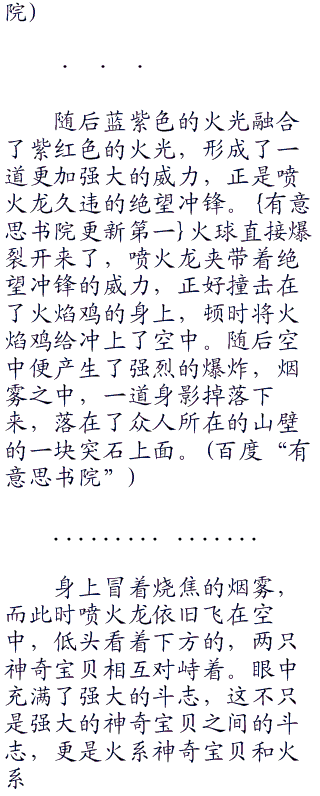 院)
. . .
随后蓝紫色的火光融合
了紫红色的火光，形成了一
道更加强大的威力，正是喷
火龙久违的绝望冲锋。{有意
思书院更新第一}火球直接爆
裂开来了，喷火龙夹带着绝
望冲锋的威力，正好撞击在
了火焰鸡的身上，顿时将火
焰鸡给冲上了空中。随后空
中便产生了强烈的爆炸，烟
雾之中，一道身影掉落下
来，落在了众人所在的山壁
的一块突石上面。(百度“有
意思书院”)
......... .......
身上冒着烧焦的烟雾，
而此时喷火龙依旧飞在空
中，低头看着下方的，两只
神奇宝贝相互对峙着。眼中
充满了强大的斗志，这不只
是强大的神奇宝贝之间的斗
志，更是火系神奇宝贝和火
系